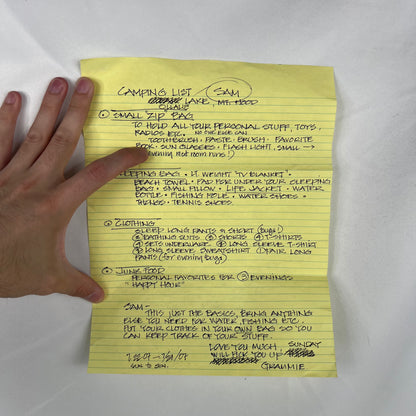 CAMPING LIST / SAM
LAKE, MT. HOOD
① SMALL ZIP BAG
TO HOLD ALL YOUR PERSONAL STUFF, TOYS,
RADIOS ETC. NO ONE ELSE CAN
TOOTHBRUSH · PASTE · BRUSH · FAVORITE
BOOK · SUN GLASSES · FLASH LIGHT, SMALL →
(evening pot room runs!)
SLEEPING BAG · LT WEIGHT "TV BLANKET" ·
BEACH TOWEL · PAD FOR UNDER YOUR SLEEPING
BAG · SMALL PILLOW · LIFE JACKET · WATER
BOTTLE · FISHING POLE · WATER SHOES ·
THONGS · TENNIS SHOES.
CLOTHING
SLEEP LONG PANTS & SHORT (bugs!)
BATHING SUITS SHORTS T-SHIRTS
SETS UNDERWARE LONG SLEEVE T-SHIRT
LONG SLEEVE SWEATSHIRT (1) PAIR LONG
PANTS (for evening bugs)
JUNK FOOD
PERSONAL FAVORITES FOR ③ EVENINGS
"HAPPY HOUR"
SAM -
THIS JUST THE BASICS, BRING ANYTHING
ELSE YOU NEED FOR WATER, FISHING ETC.
PUT YOUR CLOTHES IN YOUR OWN BAG SO YOU
CAN KEEP TRACK OF YOUR STUFF.
LOVE YOU MUCH SUNDAY
WILL PICK YOU UP
7/22/07 – 7/29/07 GRAMMIE
SUN TO SUN.